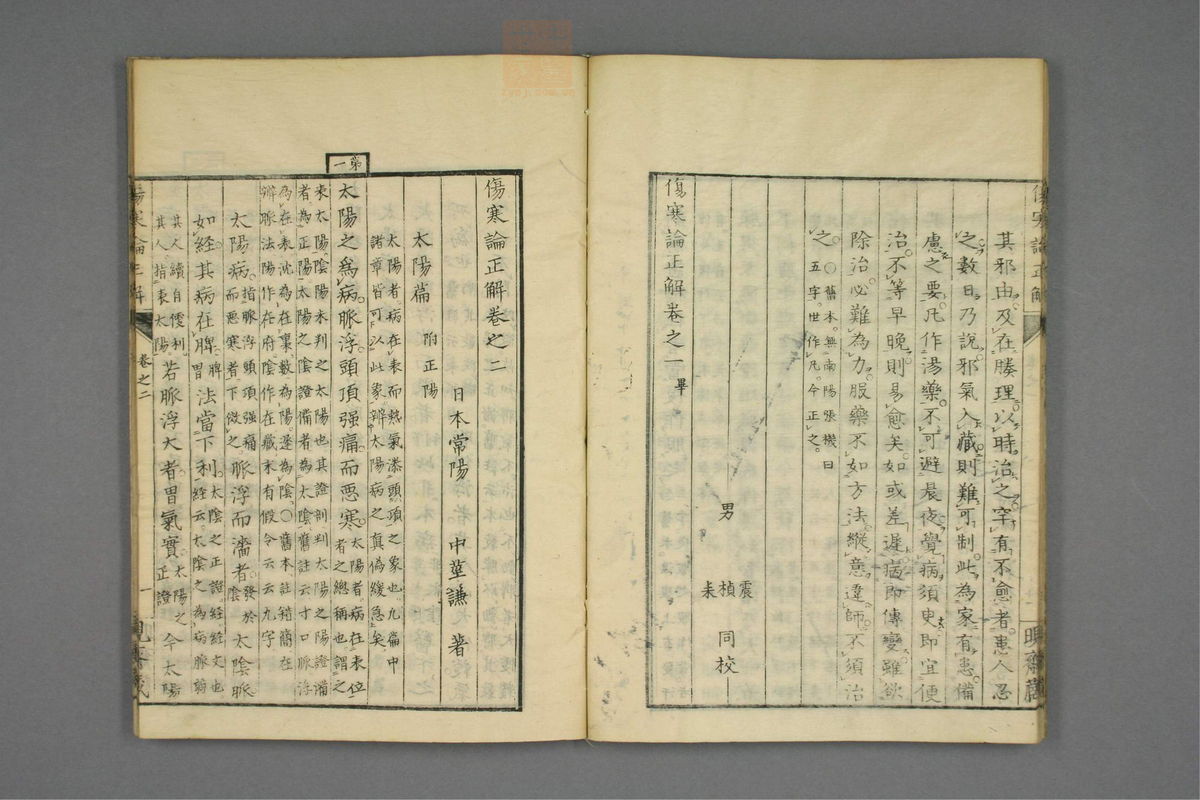 其邪由及在腠理以時治之罕有不愈者患人忍
之數日乃說邪氣入藏則難可制此為家有患備
慮之要凡作湯藥不可避晨夜覺病須臾即宜便
治不等早晚則易愈矣如或差遲病即傳變雖欲
除治必難為力服藥不如方法縱意違師不須治
之○舊本無南陽張機曰
五字世作凡今正之
傷寒論正解卷之一畢
男
震
楨
同校
傷寒論正解卷之二
日本常陽 中莖謙 著
太陽篇 附正陽
太陽者病在表而熱氣
諸章皆可以此象辨太陽病之真偽緩急矣
第一
太陽之為病脈浮頭項强痛而惡寒太陽者病在表位
者之總稱也謂之
表太陽陰陽未判之太陽也其證剖判太陽之陽證備
者為正陽太陽之陰證備者為太陰舊註云寸口脈浮
為在表沈為在裏數為陽遲為陰○舊本註
辨脈法陽作在府陰作在藏末有假令云云九字
太陽病指脈浮頭項強痛
而惡寒者下傚之
脈浮而濇者發於
陰
太陰脈
如經其病在脾脾
胃
法當下利太陰之正證經經文也
經云太陰之為病脈弱
其人續自便利
其人指表太陽
若脈浮大者胃氣實太陽之
正證
今太陽
傷寒論正解
卷之二
一